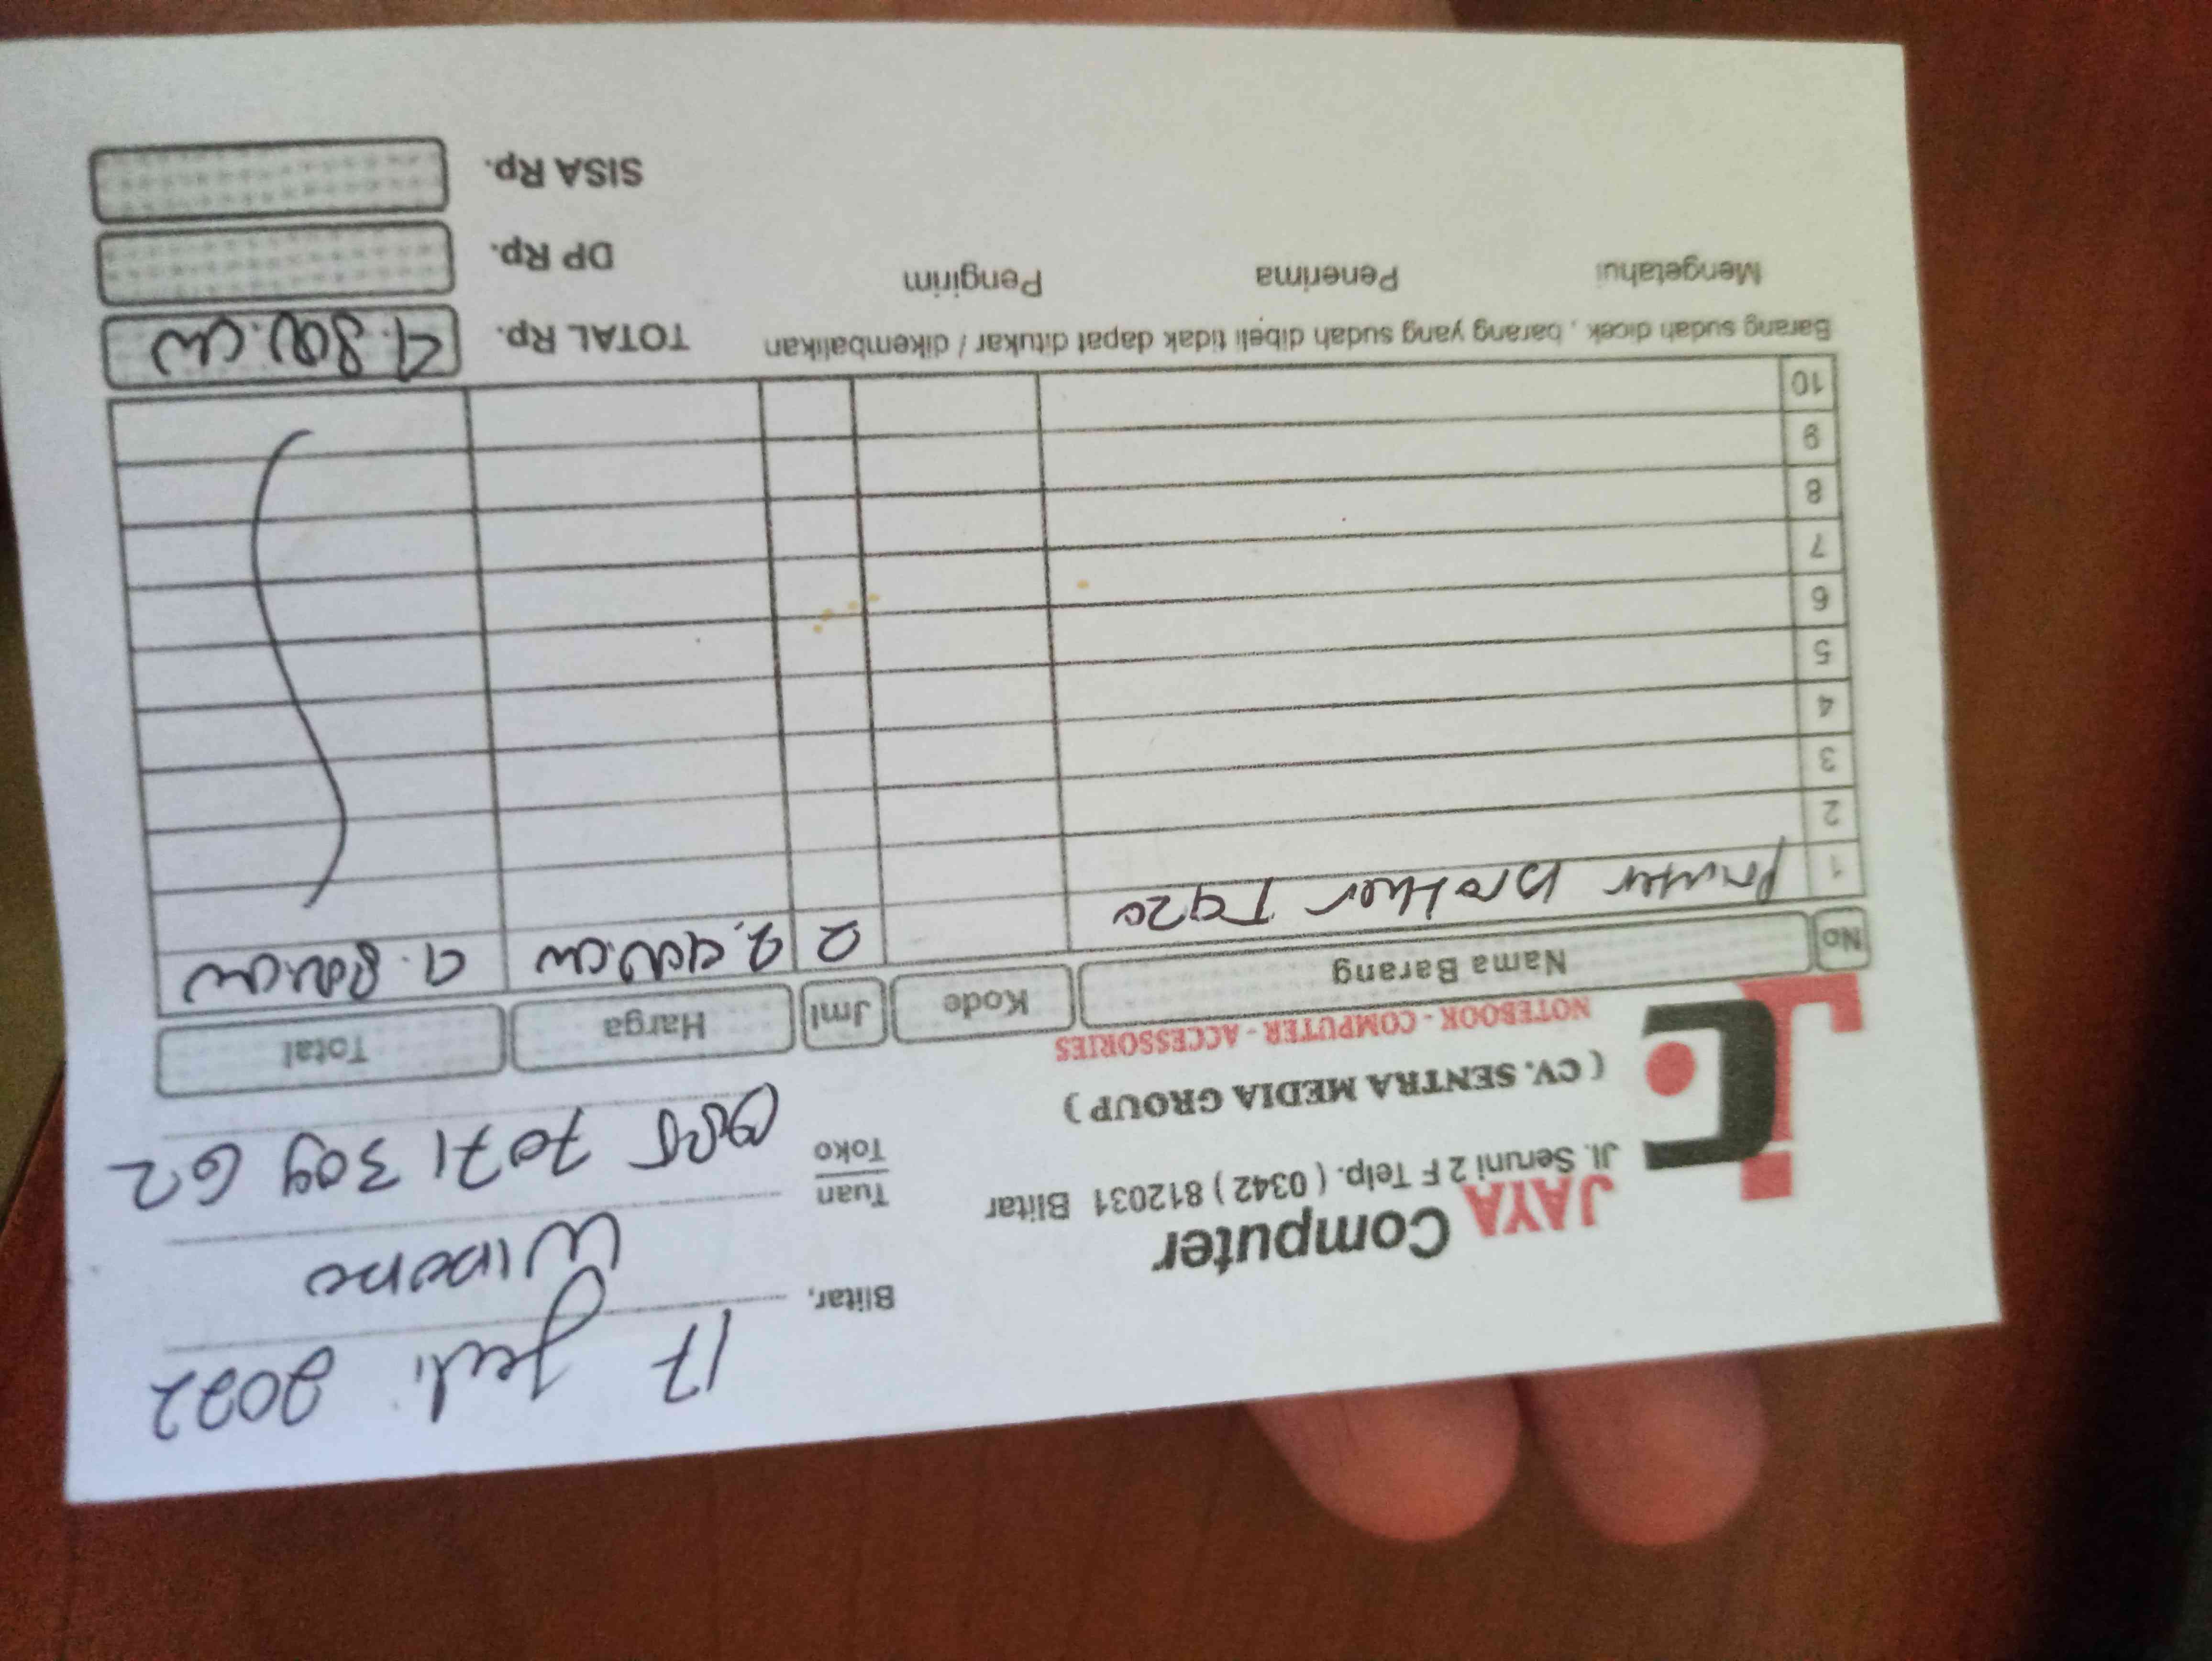 JAYA Computer
Jl. Seruni 2 F Telp. ( 0342 ) 812031 Blitar
( CV. SENTRA MEDIA GROUP )
NOTEBOOK - COMPUTER - ACCESSORIES
17 Juli 2022
Blitar,
Tuan
Toko
085 7071 309 62
No Nama Barang Kode Jml Harga Total
1 Printer Brother T920 2 2.400.000 4.800.000
2
3
4
5
6
7
8
9
10
Barang sudah dicek , barang yang sudah dibeli tidak dapat ditukar / dikembalikan
TOTAL Rp. 4.800.000
Mengetahui Penerima Pengirim
DP Rp.
SISA Rp.